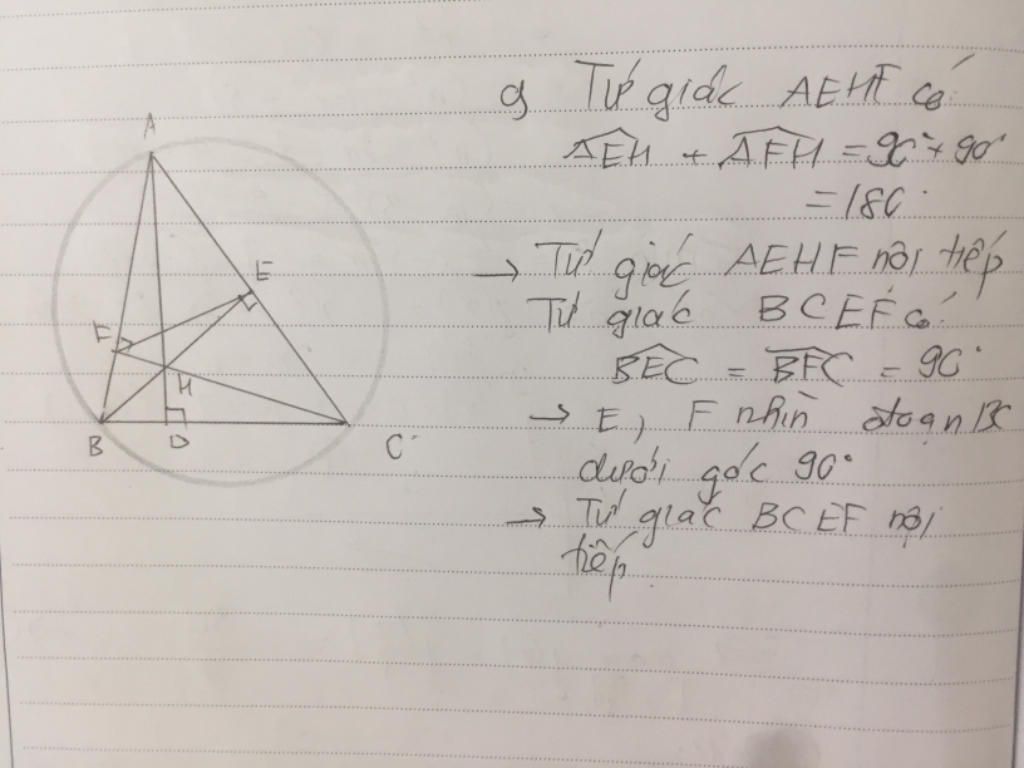 A
E
F
H
B
D
C
a) Tứ giác AEHF có
AEH + AFH = 90° + 90°
= 180°
→ Tứ giác AEHF nội tiếp
Tứ giác BCEF có
BEC = BFC = 90°
→ E, F nhìn đoạn BC
dưới góc 90°
→ Tứ giác BCEF nội
tiếp